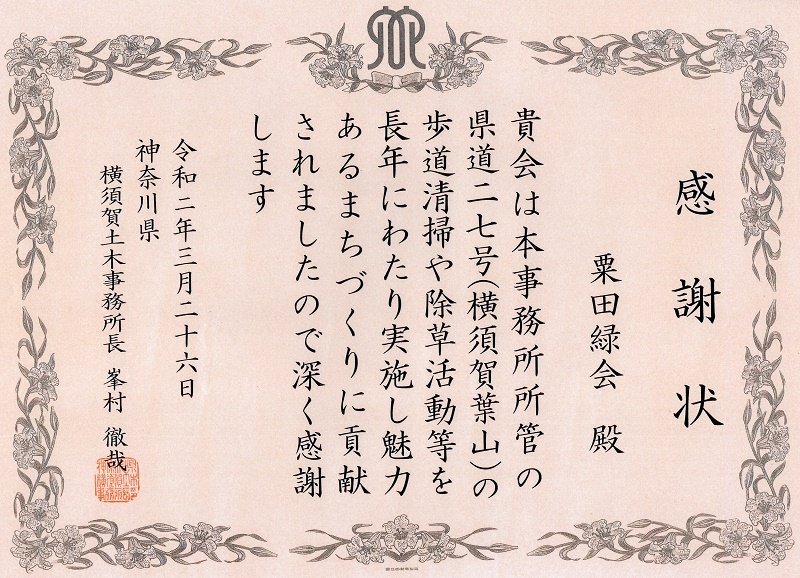 感謝状
粟田緑会 殿
貴会は本事務所所管の
県道二七号(横須賀葉山)の
歩道清掃や除草活動等を
長年にわたり実施し魅力
あるまちづくりに貢献
されましたので深く感謝
します
令和二年三月二十六日
神奈川県
横須賀土木事務所長 峯村 徹哉